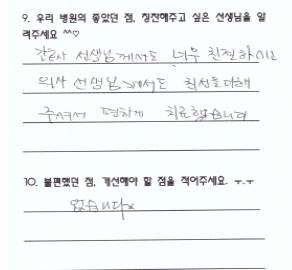 9. 우리 병원의 좋았던 점, 칭찬해주고 싶은 선생님을 알
려주세요 ^^♡
간호사 선생님께서도 너무 친절하시고
의사 선생님께서도 최선을 다해
주셔서 편하게 치료했습니다
10. 불편했던 점, 개선해야 할 점을 적어주세요. ㅜ.ㅜ
없습니다